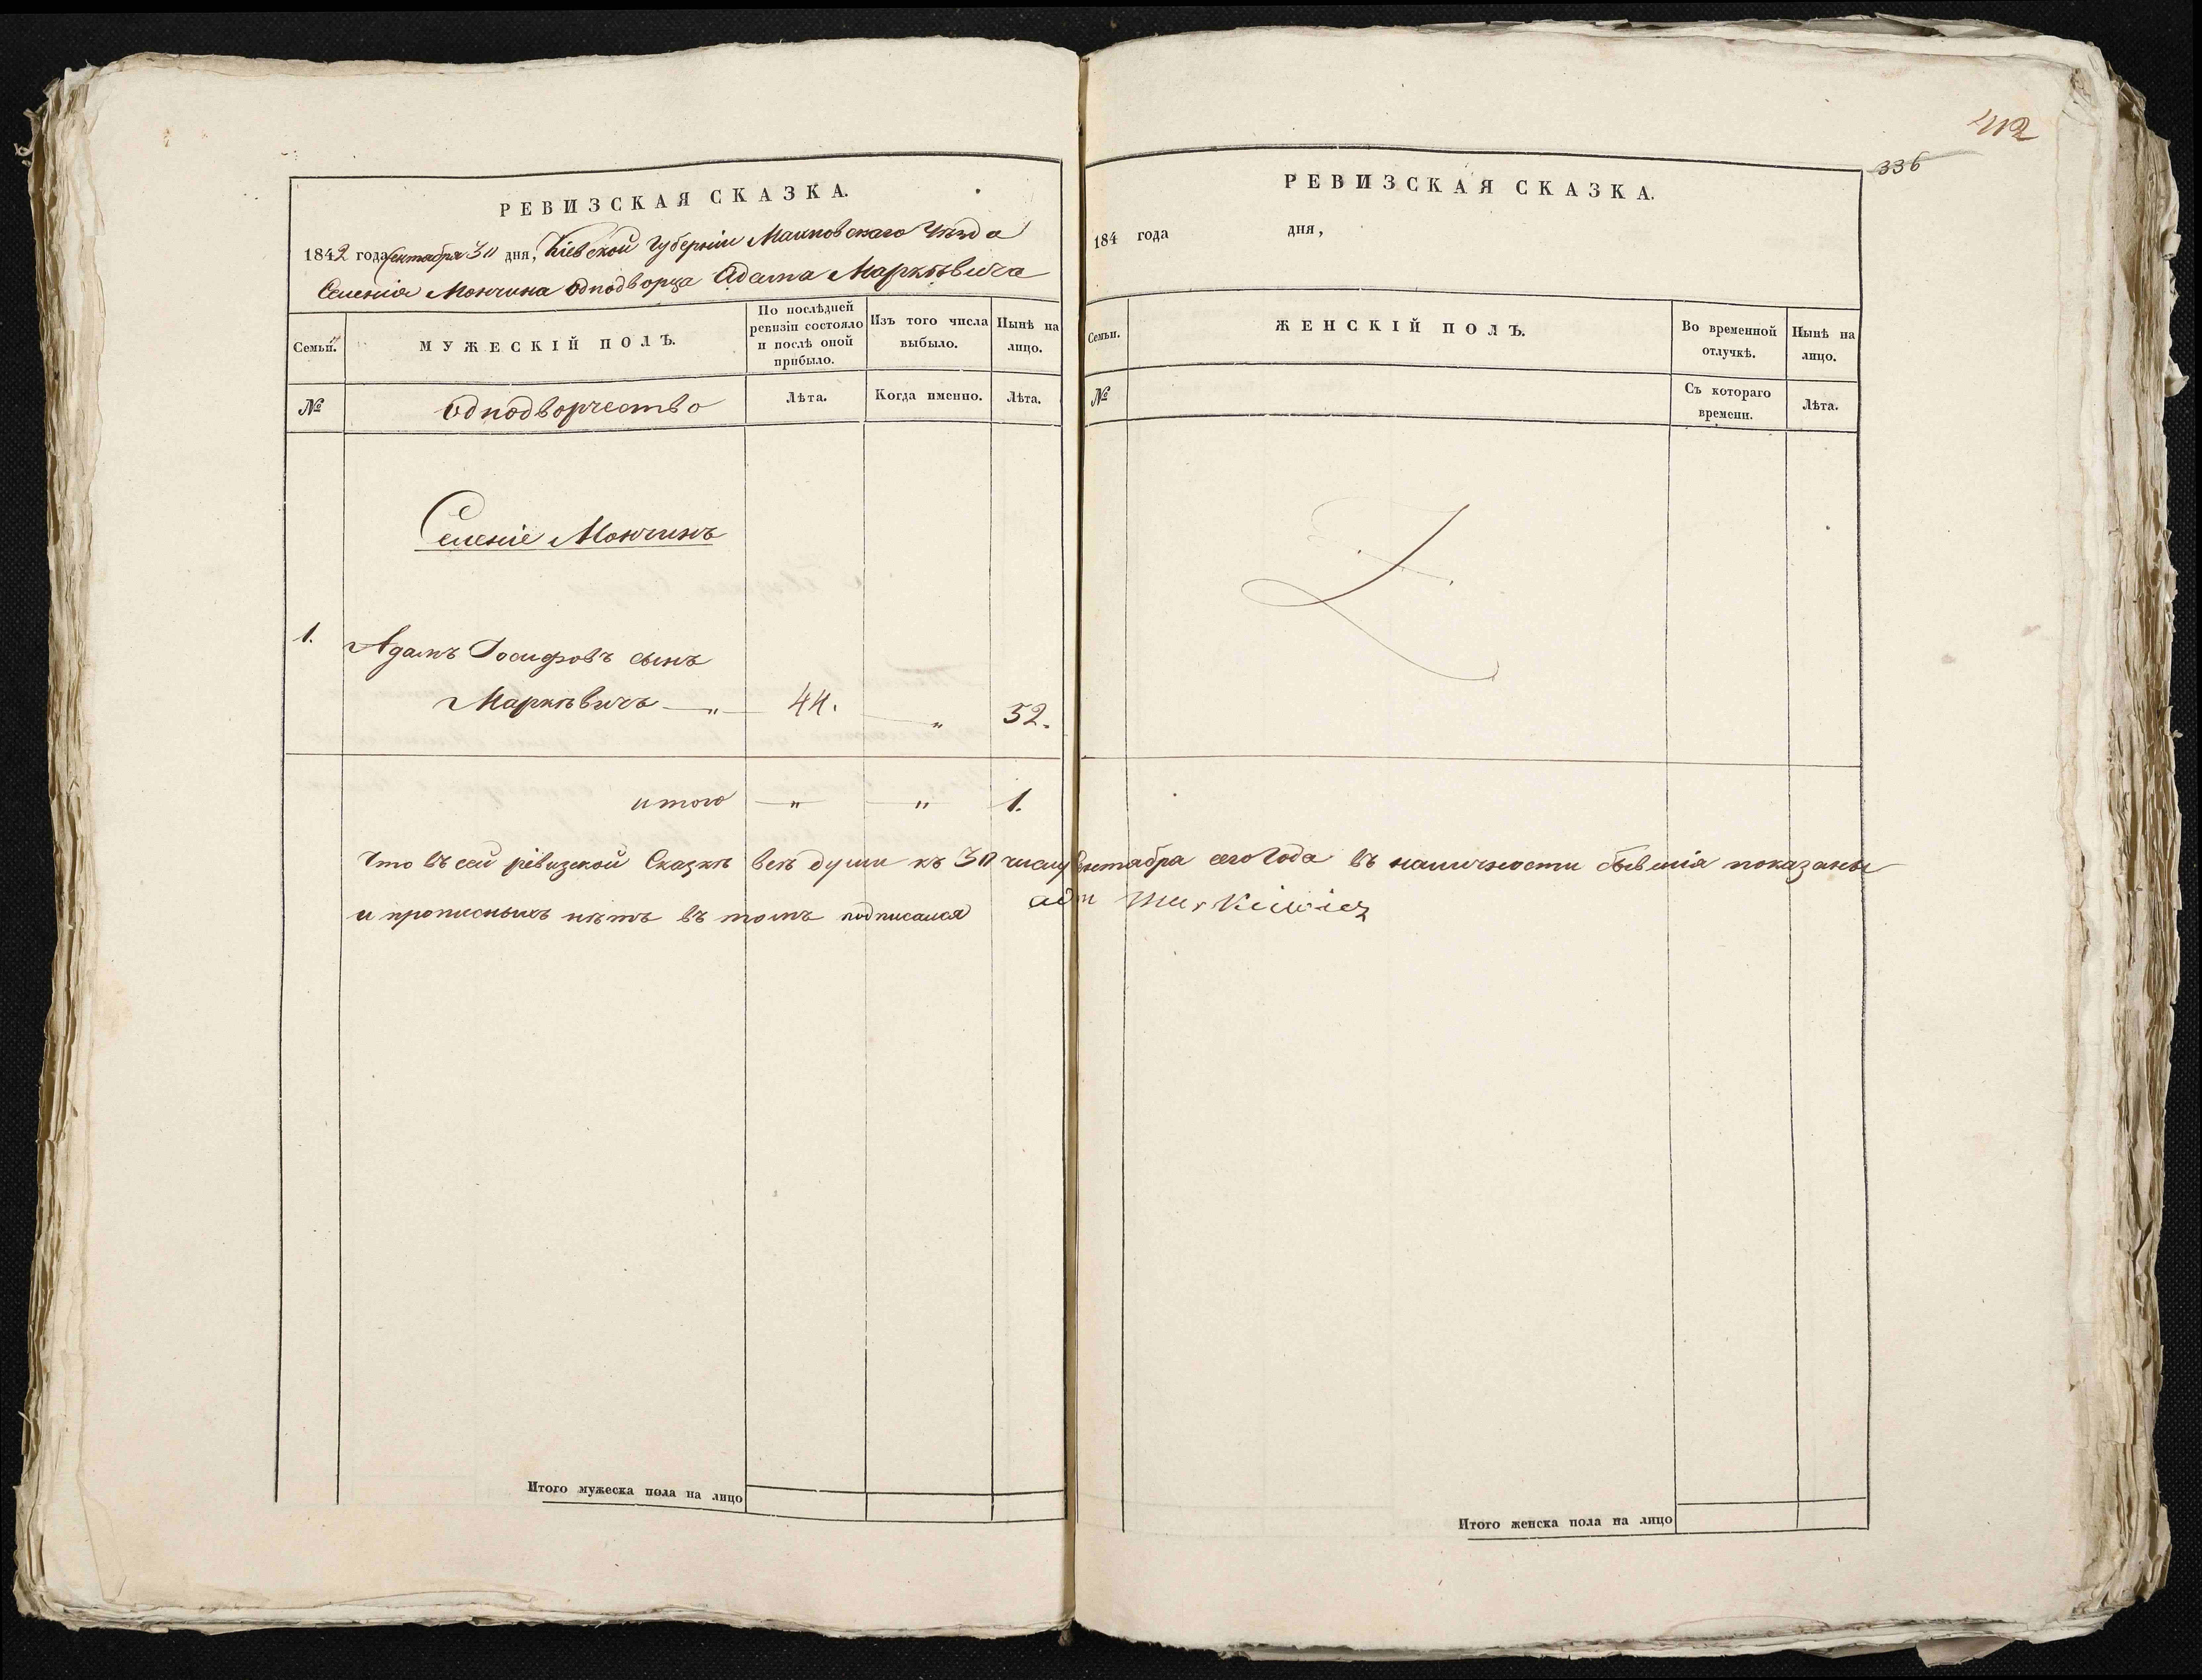 412
336
РЕВИЗСКАЯ СКАЗКА.
1842 года Сентября 30 дня, Кіевской Губерніи Махновскаго Уѣзда
Селенія Мончина однодворца Адама Маркѣвича
Семьи.
МУЖЕСКІЙ ПОЛЪ.
По послѣдней
ревизіи состояло
и послѣ оной
прибыло.
Изъ того числа
выбыло.
Нынѣ на
лицо.
№
Однодворчество
Лѣта.
Когда именно.
Лѣта.
Селеніе Мончинъ
1.
Адамъ Іосифовъ сынъ
Маркѣвичъ — „ — 44. — „ 52.
итого — „ — — „ — 1.
Что въ сей ревизской Сказкѣ всѣ души къ 30 числу Сентября сего Года въ наличности бывшія показаны
и прописныхъ нѣтъ въ томъ подписался Adm Markiewicz
Итого мужеска пола на лицо
РЕВИЗСКАЯ СКАЗКА.
184 года дня,
Семьи.
ЖЕНСКІЙ ПОЛЪ.
Во временной
отлучкѣ.
Нынѣ на
лицо.
№
Съ котораго
времени.
Лѣта.
Итого женска пола на лицо